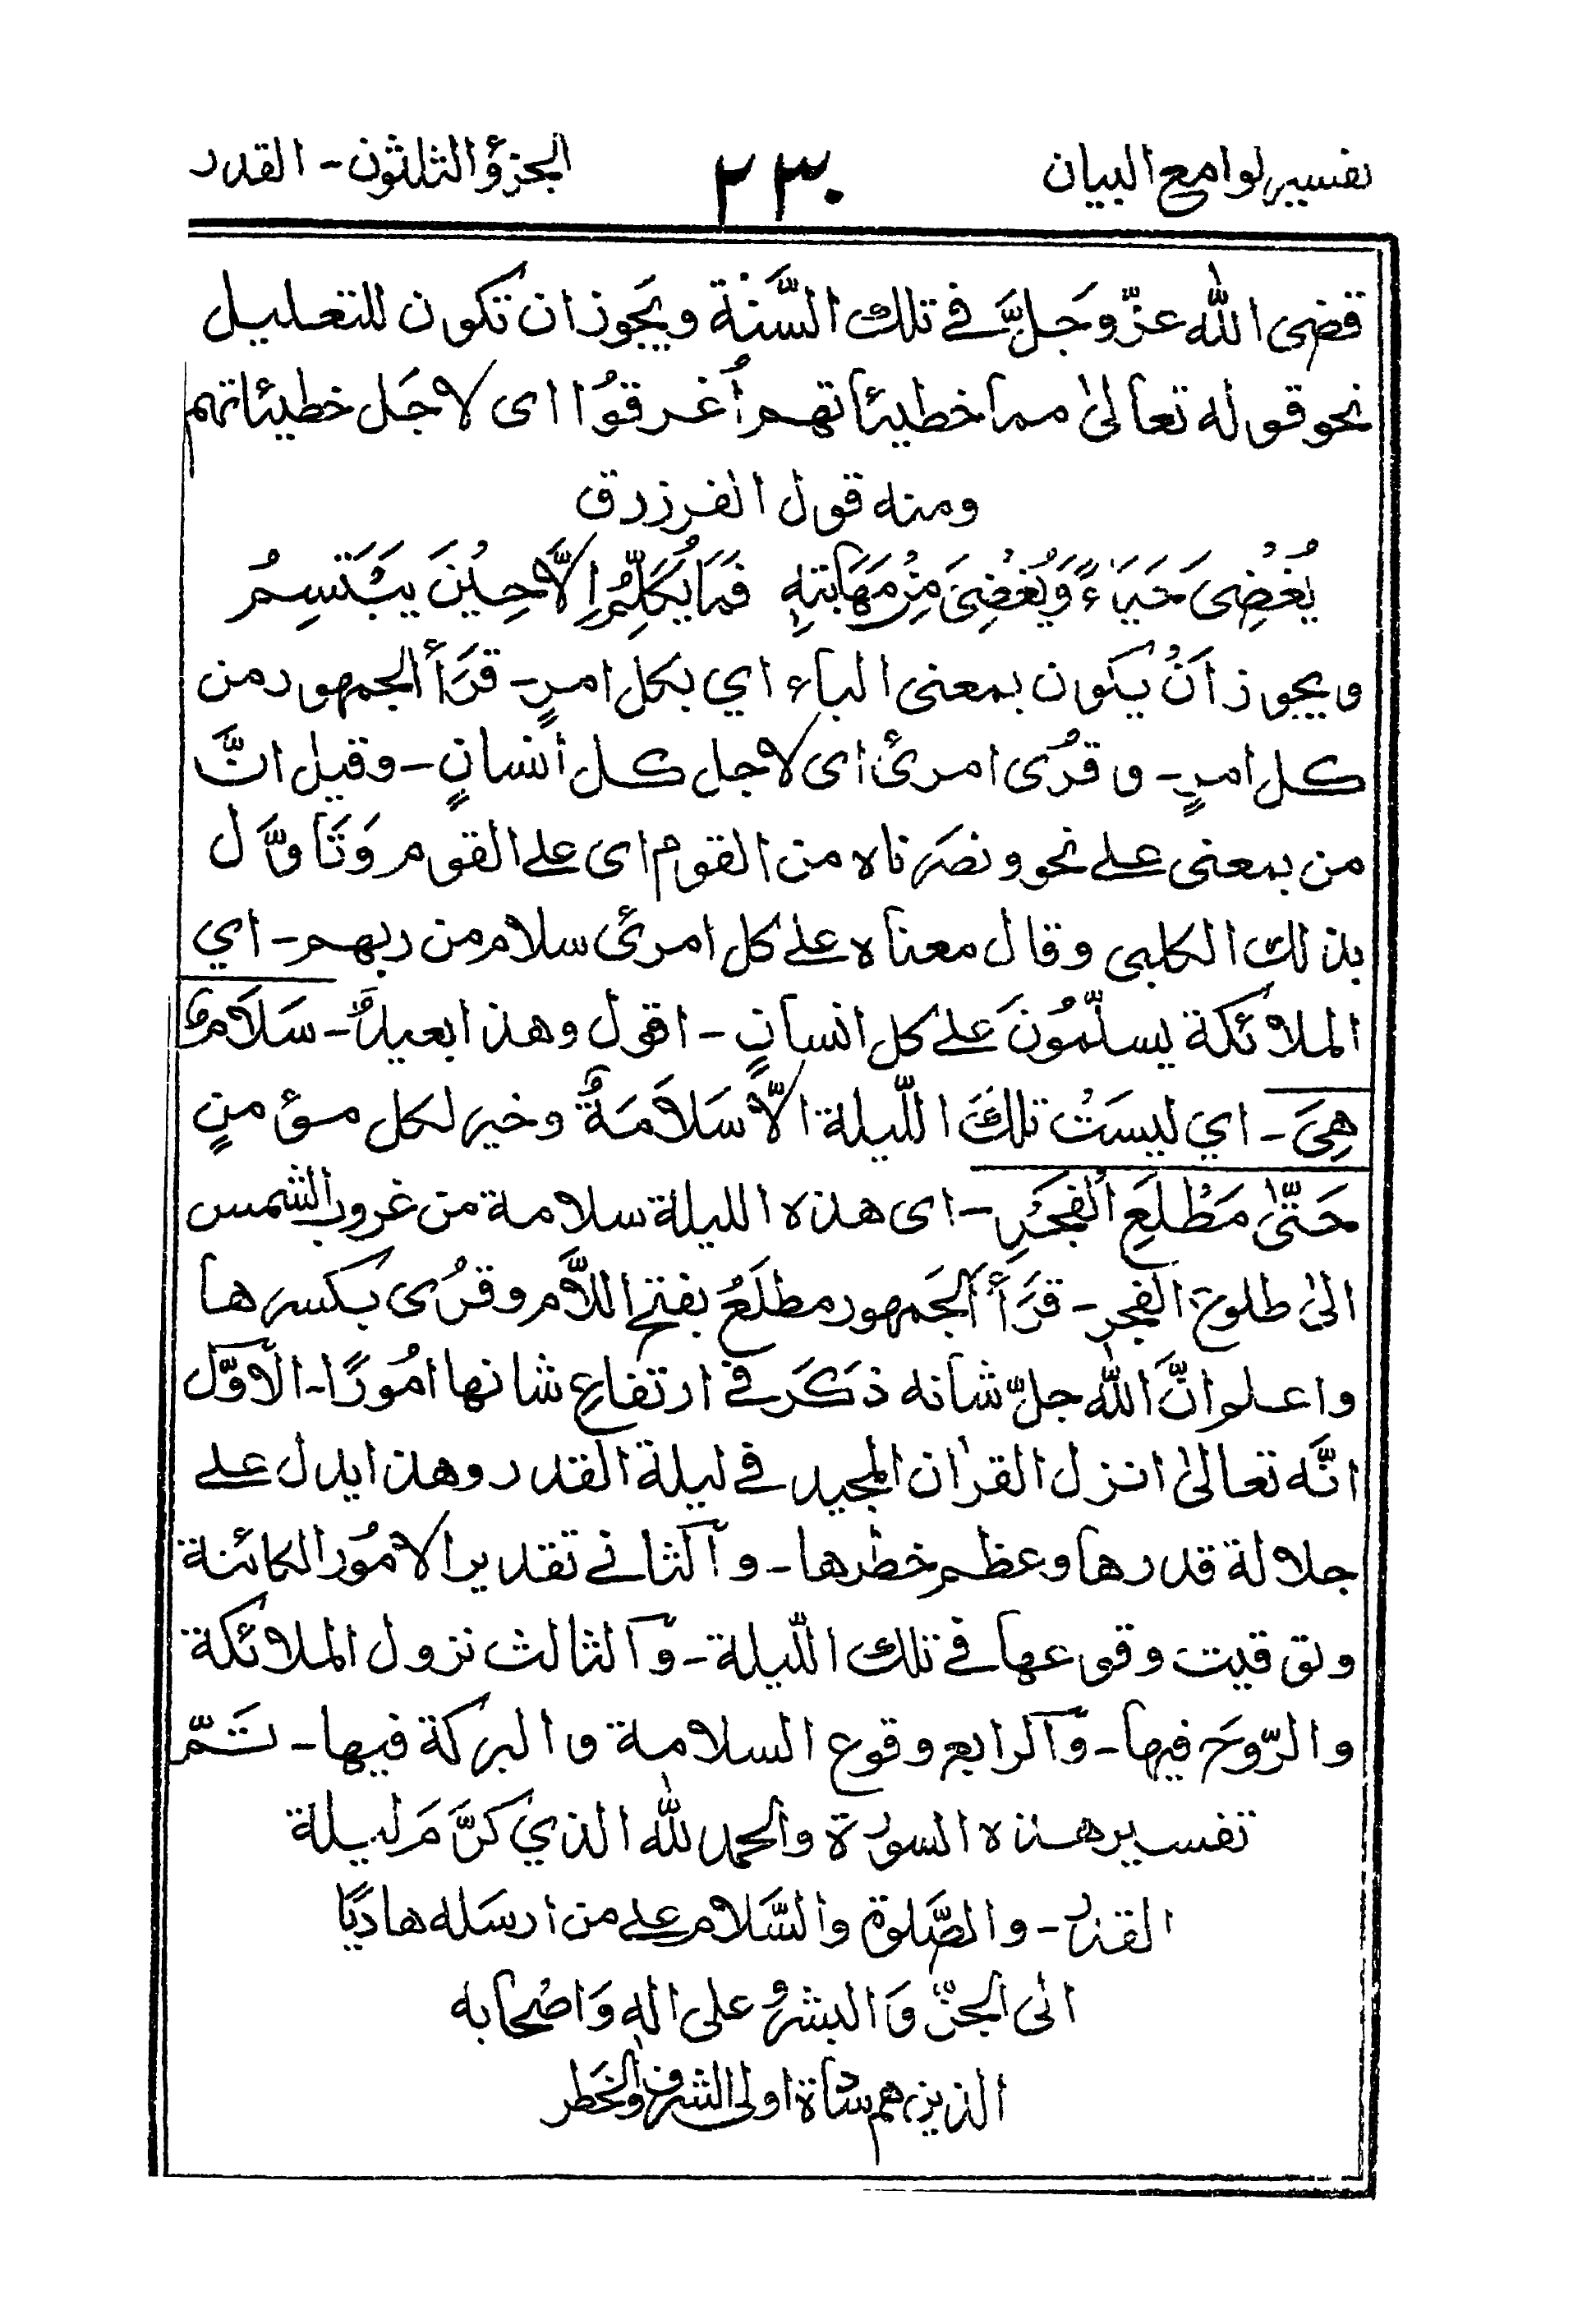 تفسير لوامع البيان ٢٣٠ الجزؤ الثلثون - القدر
قضى الله عزّ وجَلَّ في تلك السَّنة ويَجوز ان تكون للتعليل
نحو قوله تعالىٰ مما خطيئاتهم اُغرقوُا اى لاجَل خطيئاتهم
ومنه قول الفرزدق
يُغْضِىَ حَيَاءً وَيُغْضِىَ مِنْ مَهَابَتِهِ فَمَا يُكَلَّمُ اِلَّا حِيْنَ يَبْتَسِمُ
ويجوز اَنْ يكون بمعنى الباء اي بكل امرٍ - قرَأ الجمهور من
كل امرٍ - وقرُى امرئ اى لاجل كل انسانٍ - وقيل انَّ
من بمعنى على نحو ونصَرناه من القوم اى على القوم وَتَأوَّل
بذلك الكلبى وقال معناه على كل امرئ سلام من ربهم - اي
الملائكة يسلّمُونَ على كل انسانٍ - اقول وهذا بعيدٌ - سَلَامٌ
هِىَ - اي ليسَتْ تلكَ اللّيلة الّا سَلَامَةٌ وخير لكل مؤمنٍ
حَتّىٰ مَطْلَعِ الْفَجْرِ - اى هذه الليلة سلامة من غروب الشمس
الىٰ طلوع الفجر - قرَأ الجَمهور مطلَعُ بفتح اللّام وقرُى بكسرها
واعلم انَّ الله جلّ شأنه ذكَرَ في ارتفاع شانها امُورًا - الآوّل
انَّه تعالىٰ انزل القرٰان المجيد في ليلة القدر وهذا يدل على
جلالة قدرها وعظم خطرها - وآلثاني تقدير الامُور الكائنة
وتوقيت وقوعها في تلك اللّيلة - وآلثالث نزول الملائكة
والرّوحَ فيها - وآلرابع وقوع السلامة والبركة فيها - تَمّ
تفسير هذه السورة والحمد لله الذي كرَّمَ ليلة
القدر - والصَّلوة والسَّلام على من ارسَله هاديًا
الى الجنّ وَالبشر وعلى اله وَاصْحابه
الذين هم سادَة اولى الشرف والخَطر